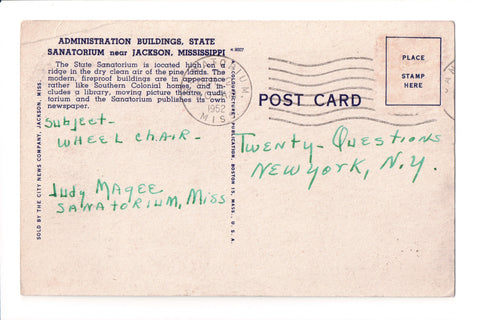 ADMINISTRATION BUILDINGS, STATE
SANATORIUM near JACKSON, MISSISSIPPI
The State Sanatorium is located high on a
ridge in the dry clean air of the pine lands. The
modern, fireproof buildings are in appearance
rather like Southern Colonial homes, and in-
cludes a library, moving picture theatre, audi-
torium and the Sanatorium publishes its own
newspaper.
SOLD BY THE CITY NEWS COMPANY, JACKSON, MISS.
Subject-
WHEEL CHAIR-
Judy MAGEE
SANATORIUM, Miss
1952
MISS
POST CARD
PLACE
STAMP
HERE
TWENTY-QUESTIONS
NEW YORK, N.Y.